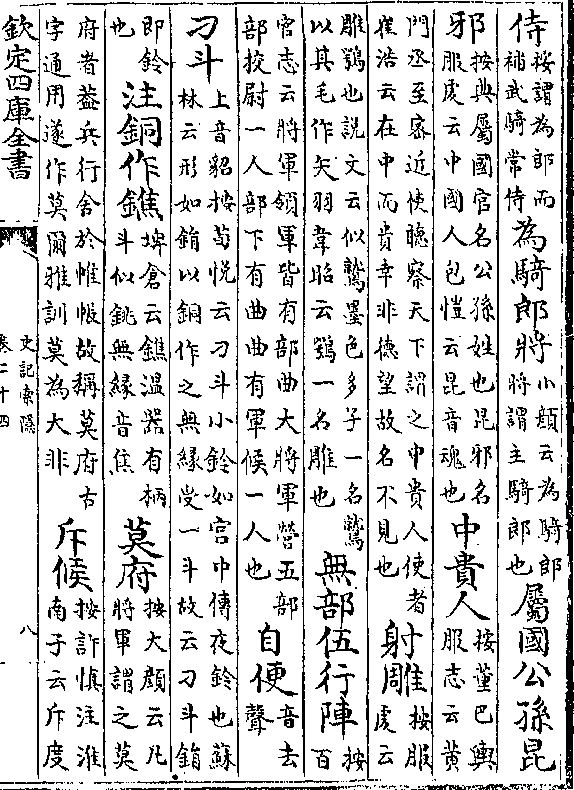 侍按謂為郎而補武騎常侍為騎郎將小顔云為騎郎將謂主騎郎也屬國公孫昆
邪按典屬國官名公孫姓也昆邪名服虔云中國人包愷云昆音魂也中貴人按董巴輿服志云黄
門丞至宻近使聽察天下謂之中貴人使者崔浩云在中而貴幸非徳望故名不見也射雕按服虔云
雕鶚也說文云似鷲墨色多子一名鷲以其毛作矢羽韋昭云鶚一名雕也無部伍行陣按百
官志云將軍領軍皆有部曲大將軍營五部部校尉一人部下有曲曲有軍候一人也自便音去聲
刁斗上音貂按荀悅云刁斗小鈴如宮中傳夜鈴也蘇林云形如鋗以銅作之無緣受一斗故云刁斗鋗
即鈴也注銅作鐎埤倉云鐎溫器有柄斗似銚無緣音焦莫府按大顔云凡將軍謂之莫
府者葢兵行舍於帷帳故稱莫府古字通用遂作莫爾雅訓莫為大非斥候按許慎注淮南子云斥度
欽定四庫全書
史記索隱
卷二十四
八